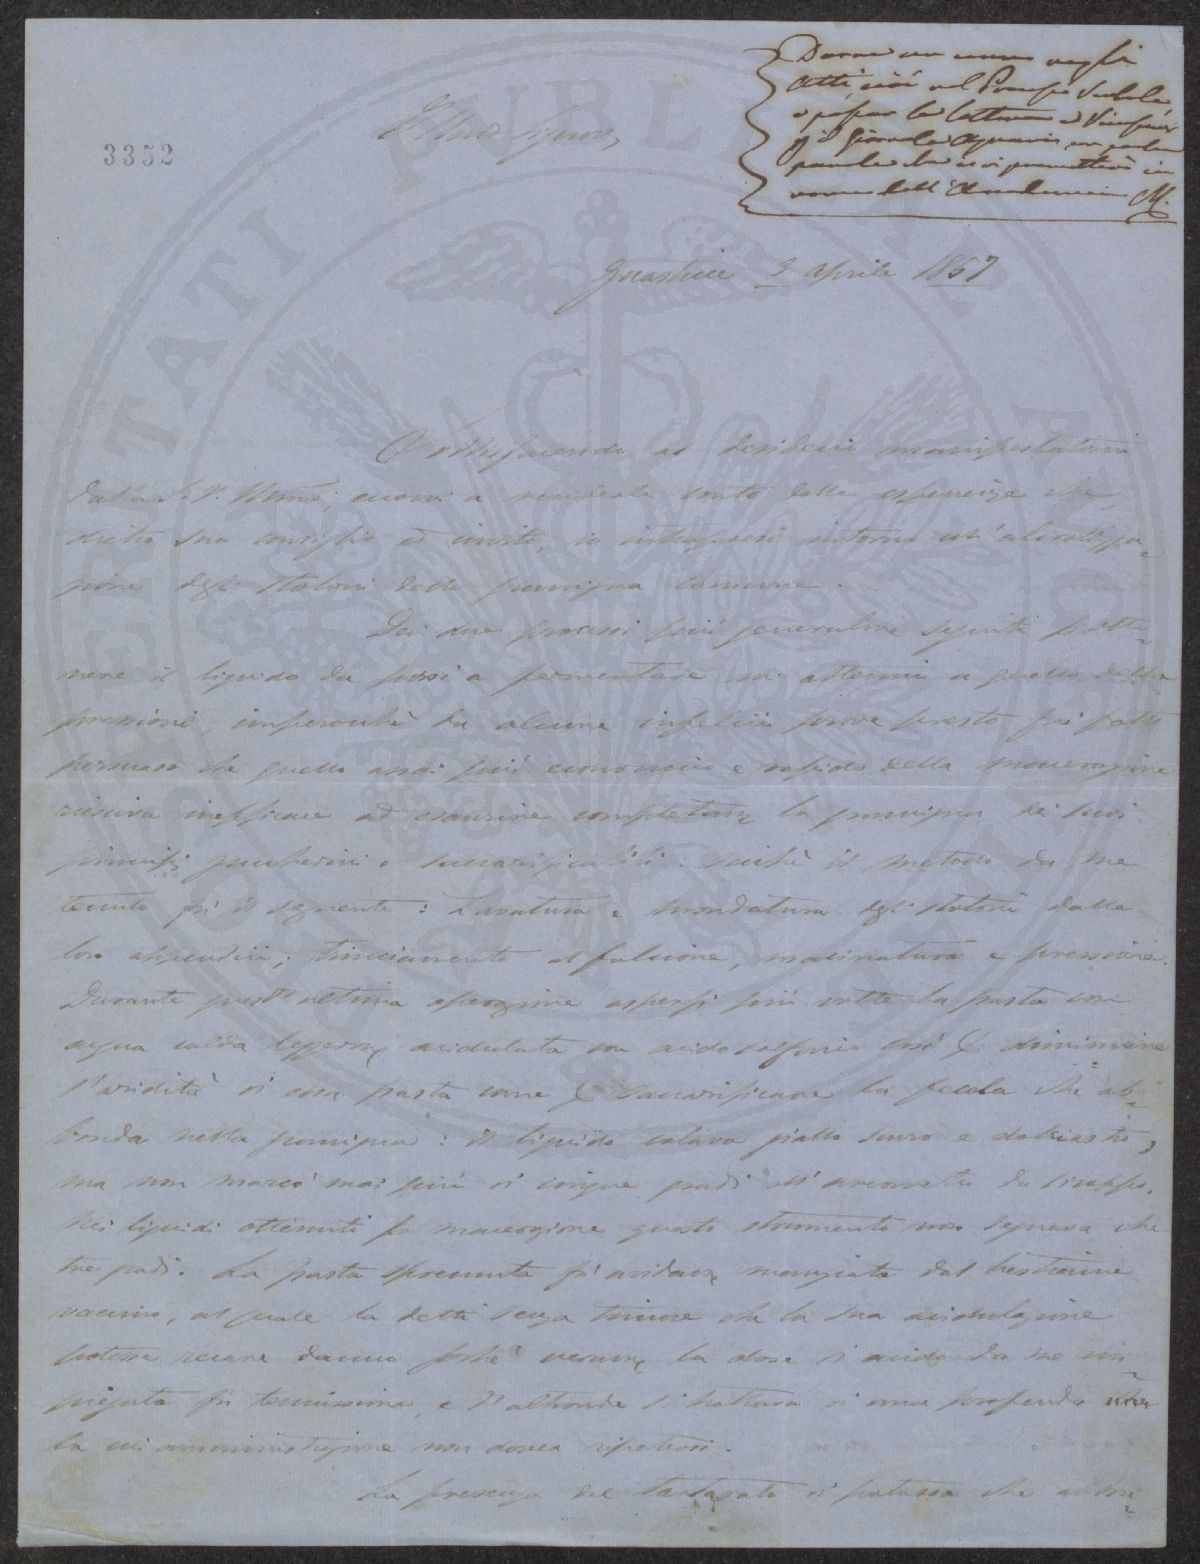 Darne un cenno negli
Atti, cioè nel
e passare la lettura a
pel Giornale Agrario
parole che
nome dell'Accademia M.
3352
Illmo Signore,
Guasticce 3 Aprile 1857
PROSPERITATI PUBLICAE AUGENDAE
Sodisfacendo al desiderio manifestatomi
dalla S. V. Illma; eccomi a renderle conto delle esperienze che,
dietro suo consiglio ed invito, io intrapresi intorno all'alcoolizza=
zione degli stoloni della gramigna comune.
Dei due processi più generalme seguiti p otte=
nere il liquido da porsi a fermentare mi attenni a quello della
pressione, imperocchè da alcune infelici prove presto fui fatto
persuaso che quello assai più economico e rapido della macerazione
riusciva inefficace ad esaurire completame la gramigna dei suoi
principj zuccherini o saccarificabili: sicchè il metodo da me
tenuto fù il seguente: Lavatura e mondatura degli stoloni dalle
loro appendici; trinciamento al falcione, macinatura e pressione.
Durante quest'ultima operazione aspersi più volte la pasta con
acqua calda leggerme acidulata con acido solforico così p diminuire
l'aridità di essa pasta come p saccarificare la fecola che ab=
bonda nella gramigna: il liquido colava giallo scuro e dolciastro,
ma non marcò mai più di cinque gradi all'areometro da sciroppo.
Nei liquidi ottenuti p macerazione questo strumento non segnava che
tre gradi. La pasta spremuta fu avidame mangiata dal bestiame
vaccino, al quale la detti senza timore che la sua acidulazione
potesse recare danno poichè verame la dose di acido da me im=
piegata fu tenuissima, e d'altronde si trattava di una profenda
la cui amministrazione non dovea ripetersi.
La presenza del tartarato di potassa che abbon=